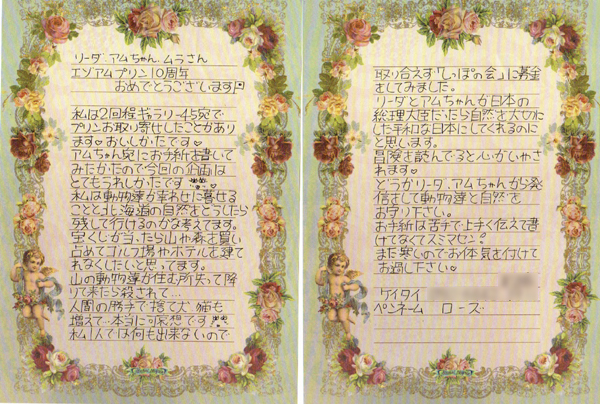 リーダ、アムちゃん、ムラさん
エゾアムプリン10周年
おめでとうございます
私は2回程ギャラリー45宛で
プリンお取り寄せしたことがあり
ます♡おいしかたです♡
アムちゃん宛にお手紙を書いて
みたかたので今回の企画は
とてもうれしかたです
私は動物達が幸わせに暮せる
ことと北海道の自然をどうしたら
残して行けるのかな考えてます。
宝くじが当ったら山や森を買い
占めてゴルフ場やホテルを建て
れなくしたいと思ってます。
山の動物達が住む所失って降
りて来たら殺されて…
人間の勝手で捨て犬、猫も
増えて…本当に可哀想です
私1人では何も出来ないので
取り合えず「しっぽの会」に募金
をしてみました。
リーダとアムちゃんが日本の
総理大臣だったら自然を大切に
した平和な日本にしてくれるのに
と思います。
読んでると心がいやさ
れます♡
どうかリーダ、アムちゃんから発
信をして動物達と自然を
お守り下さい。
お手紙は苦手で上手く伝えて書
けてなくてスミマセン?
まだ寒いのでお体気を付けて
お過し下さい♡
ケイタイ
ペンネーム ローズ